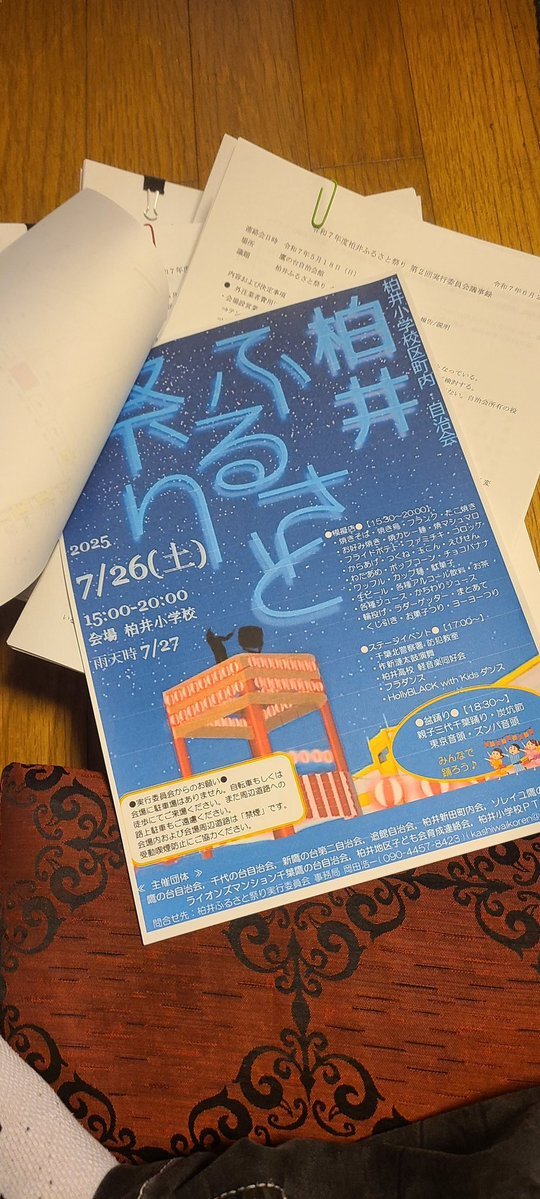 令和7年度柏井ふるさと祭り 第2回実行委員会議事録
連絡会日時 令和7年5月18日（日）
場所 鷹の台自治会館
議題 柏井ふるさと祭り
内容および決定事項
柏井小学校区町内・自治会
柏井
ふるさと
祭り
2025
7/26(土)
15:00-20:00
会場 柏井小学校
雨天時 7/27
●模擬店●【15:30~20:00】
・焼きそば・焼き鳥・フランク・たこ焼き
・お好み焼き・焼カレー麺・焼マシュマロ
・フライドポテト・ファミチキ・コロッケ
・からあげ・つくね・玉こん・えびせん
・わたあめ・ポップコーン・チョコバナナ
・ワッフル・カップ麺・駄菓子
・生ビール・各種アルコール飲料・お茶
・各種ジュース・かちわりジュース
・輪投げ・ラダーゲッター・まとあて
・くじ引き・お菓子つり・ヨーヨーつり
●ステージイベント●【17:00~】
・千葉北警察署・防犯教室
・作新連太鼓演舞
・柏井高校 軽音楽同好会
・フラダンス
・HollyBLACK with Kidsダンス
●盆踊り●【18:30~】
親子三代千葉踊り・炭坑節
東京音頭・ズンバ音頭
みんなで
踊ろう♪
●実行委員会からのお願い●
会場に駐車場はありません。自転車もしくは
徒歩にてご来場ください。また周辺道路への
路上駐車もご遠慮ください。
会場内および会場周辺道路は「禁煙」です。
受動喫煙防止にご協力ください。
≪ 主催団体 ≫
鷹の台自治会、千代の台自治会、新鷹の台第二自治会、進館自治会、柏井新田町内会、ソレイユ鷹の
ライオンズマンション千葉鷹の台自治会、柏井地区子ども会育成連絡会、柏井小学校PT
問合せ先：柏井ふるさと祭り実行委員会 事務局 岡田浩一（090-4457-8423）kashiwaikoren@